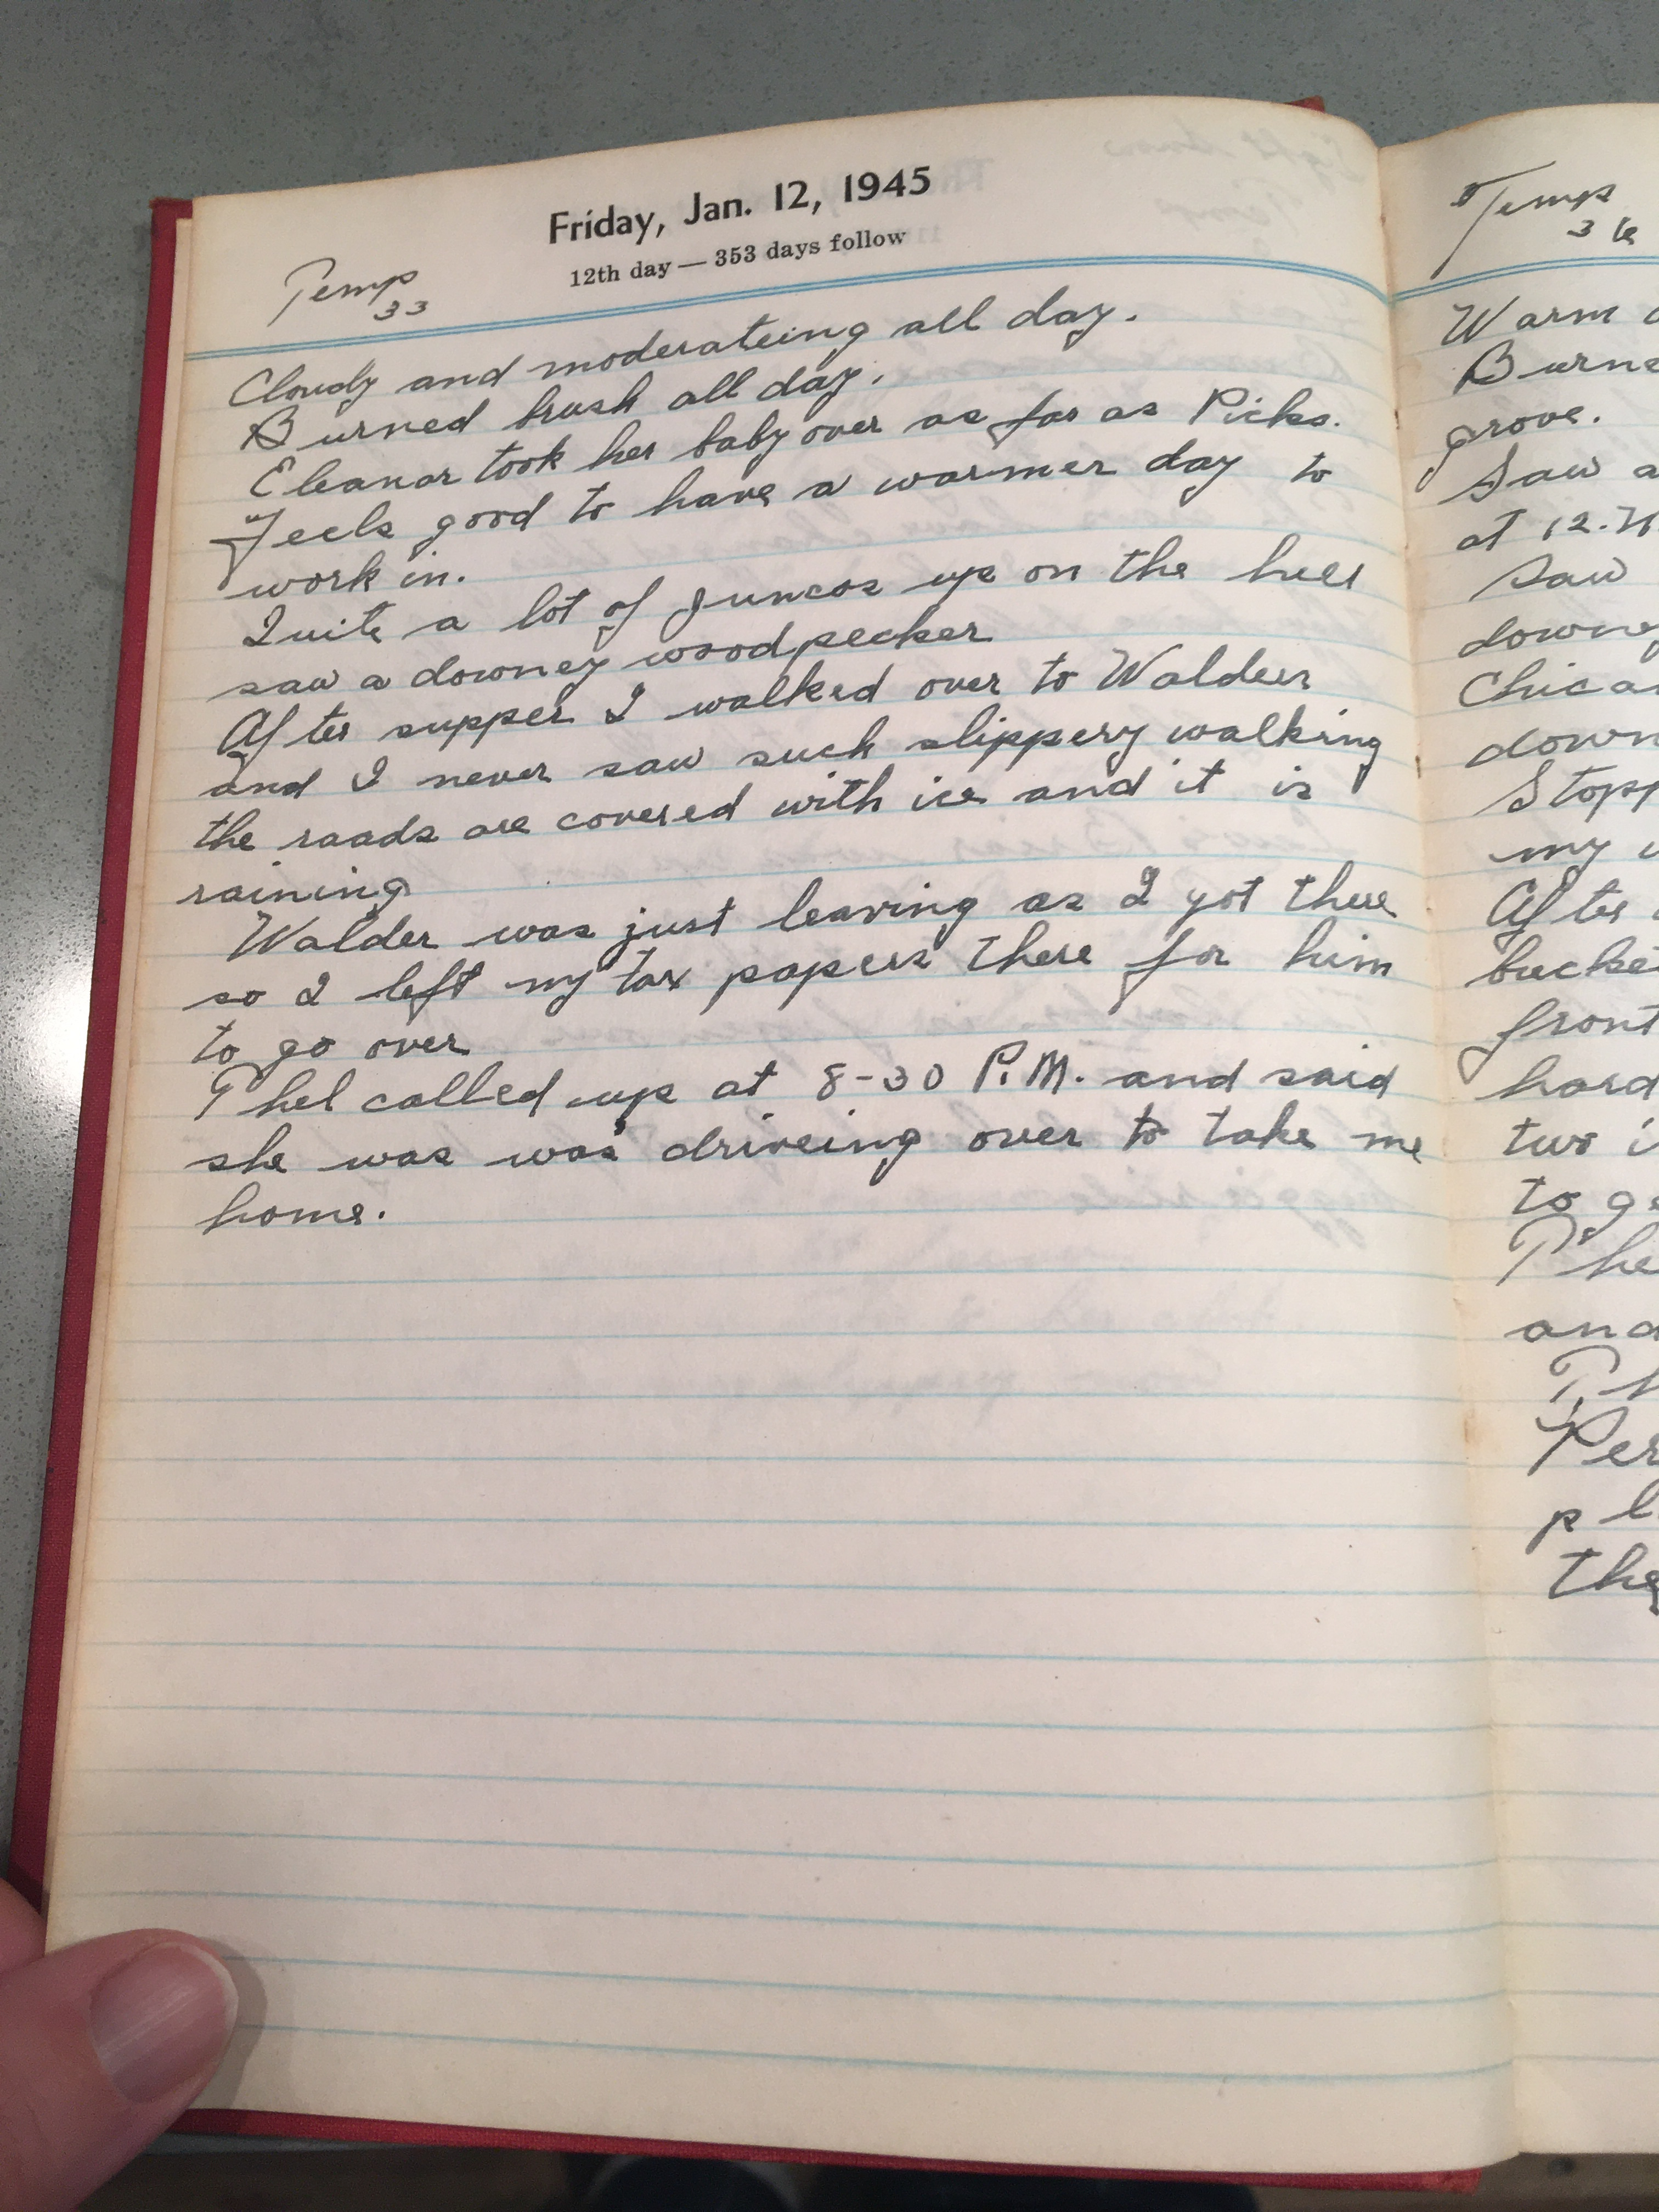 Friday, Jan. 12, 1945
12th day — 353 days follow
Temp
33
Cloudy and moderateing all day.
Burned brush all day.
Eleanor took her baby over as far as Picks.
Feels good to have a warmer day to
work in.
Quite a lot of juncos up on the hill
saw a downey woodpecker
After supper I walked over to Walders
and I never saw such slippery walking
the roads are covered with ice and it is
raining
Walder was just leaving as I got there
so I left my tax papers there for him
to go over
Phel called up at 8-30 P.M. and said
she was was driveing over to take me
home.
Temp
36
Warm
Burne
grove.
Saw a
at 12.
Saw
downey
Chica
down
Stopp
my
After
bucke
front
hard
two i
to ge
Phe
and
Ph
Per
pl
the